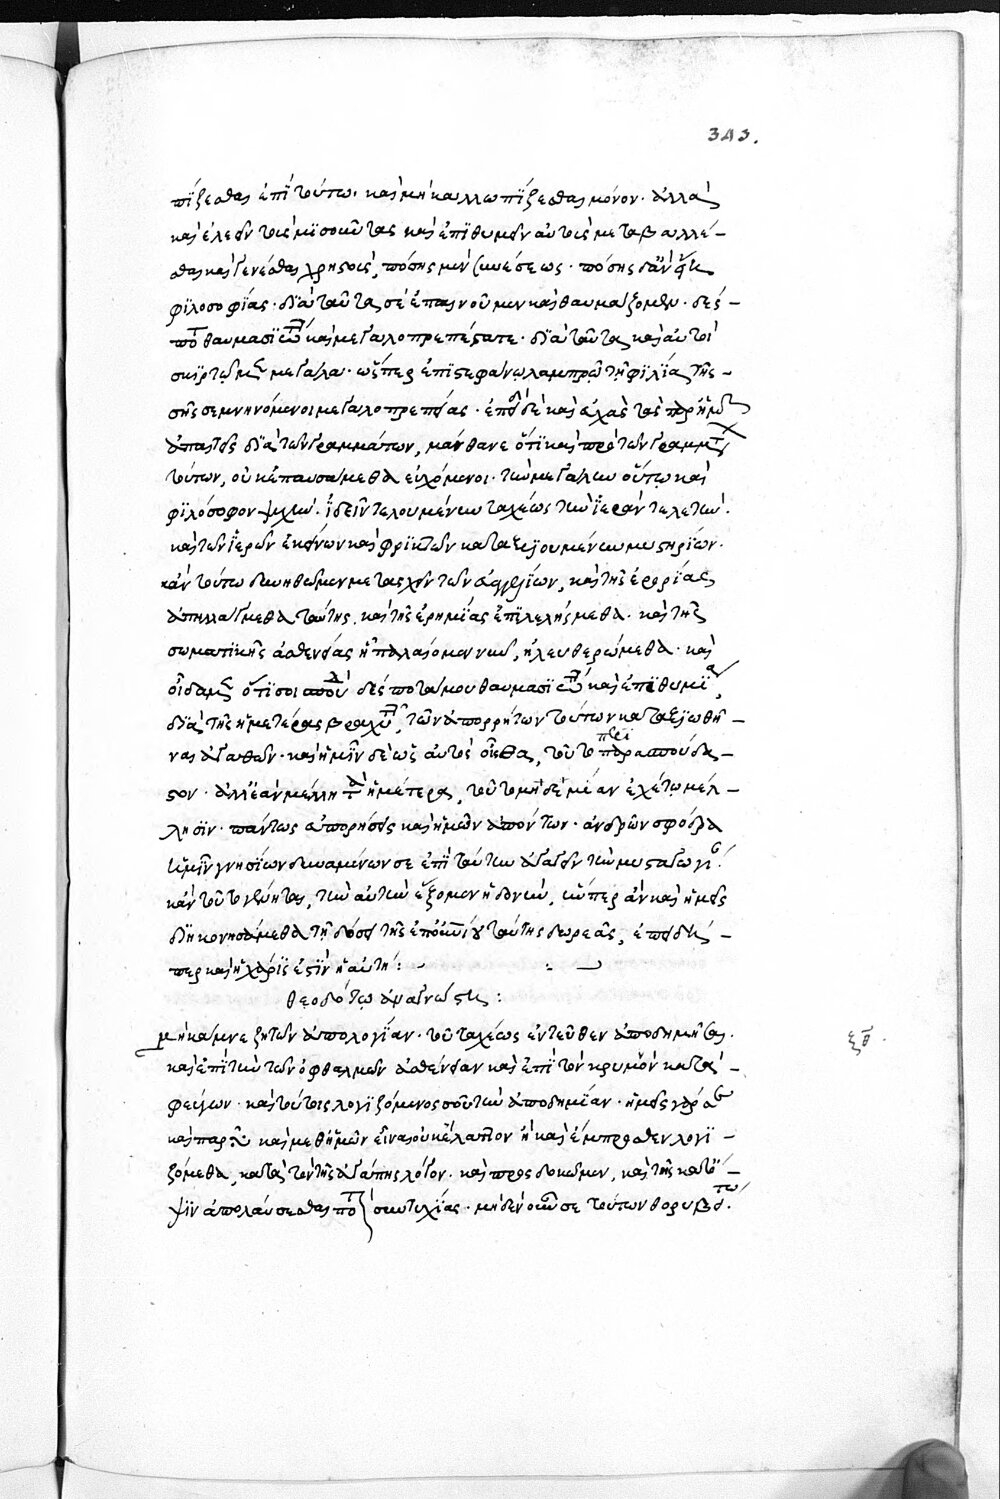 343.
πίζεσθαι ἐπὶ τούτω· καὶ μὴ καλλωπίζεσθαι μόνον· ἀλλὰ
καὶ ἐλεεῖν τοὺς μισοῦντας καὶ ἐπιθυμεῖν αὐτοὺς μεταβαλλέ-
σθαι καὶ γενέσθαι χρηστοὺς, πόσης μὲν συνέσεως· πόσης δ' ἂν εἴη
φιλοσοφίας· διὰ ταῦτα σὲ ἐπαινοῦμεν καὶ θαυμάζομεν· δέσ-
ποτά θαυμασιώτ καὶ μεγαλοπρεπέστατε· διὰ ταῦτα καὶ αὐτοὶ
σκιρτῶμεν μεγάλα· ὥσπερ ἐπὶ στεφάνω λαμπρῶ τῆ φιλία τῆς
σῆς σεμνυνόμενοι μεγαλοπρεπείας· ἐπειδὴ δὲ καὶ εὐχὰς τὰς παρ' ἡμῶν
ἀπαιτεῖς διὰ τῶν γραμμάτων, μάνθανε ὅτι καὶ πρὸ τῶν γραμμάτων
τούτων, οὐκ ἐπαυσάμεθα εὐχόμενοι· τὴν μεγάλην οὕτω καὶ
φιλόσοφον ψυχὴν· ἰδεῖν τελουμένην ταχέως τὴν ἱερὰν τελετὴν·
καὶ τῶν ἱερῶν ἐκείνων καὶ φρικτῶν καταξιουμένην μυστηρίων·
κἂν τούτω δυνηθῶμεν μετασχεῖν τῶν εὐαγγελίων, καὶ τῆς ἐξορίας
ἀπηλλάγμεθα ταύτης· καὶ τῆς ἐρημίας ἐπιλελήσμεθα· καὶ τῆς
σωματικῆς ἀσθενείας ἧ παλαίομεν νῦν, ἠλευθερώμεθα· καὶ
οἴδαμεν ὅτι σοι πολὺ δέσποτά μου θαυμασιώτ καὶ ἐπιθυμία,
διὰ τῆς ἡμετέρας βραχύτ, τῶν ἀπορρήτων τούτων καταξιωθῆ-
ναι ἀγαθῶν· καὶ ἡμῖν δὲ ὡς αὐτὸς οἶσθα, τοῦτο περισπούδα-
στον· ἀλλ' ἐὰν μέλλη τὰ ἡμέτερα, τοῦτο μηδεμίαν ἐχέτω μέλ-
λησιν· πάντως εὐπορήσεις καὶ ἡμῶν ἀπόντων· ἀνδρῶν σφόδρα
ἡμῖν γνησίων δυναμένων σε ἐπὶ ταύτην ἀγαγεῖν τὴν μυσταγωγί·
κἂν τοῦτο γένηται, τὴν αὐτὴν ἕξομεν ἡδονὴν, ἥνπερ ἂν καὶ ἡμεῖς
διηκονησάμεθα τῆ δόσει τῆς ἐπουρανίου ταύτης δωρεᾶς, ἐπειδή-
περ καὶ ἡ χάρις ἐστὶν ἡ αὐτή:
θεοδότω ἀναγνώστη:
μὴ κάμνε ζητῶν ἀπολογίαν· τοῦ ταχέως ἐντεῦθεν ἀποδημῆσαι·
καὶ ἐπὶ τὴν τῶν ὀφθαλμῶν ἀσθένειαν καὶ ἐπὶ τὸν κρυμὸν κατα-
φεύγων· καὶ τούτοις λογιζόμενος σου τὴν ἀποδημίαν· ἡμεῖς γάρ σε
καὶ παρεῖναι καὶ μεθ' ἡμῶν εἶναι οὐκ ἔλαττον ἢ καὶ ἔμπροσθεν λογι-
ζόμεθα, κατὰ τὸν τῆς ἀγάπης λόγον· καὶ προσδοκῶμεν, καὶ τῆς κατ' ὄ-
ψιν ἀπολαύσεσθαί ποτέ σου συντυχίας· μηδὲν οὖν σε τούτων θορυβείτω·
ξθ.